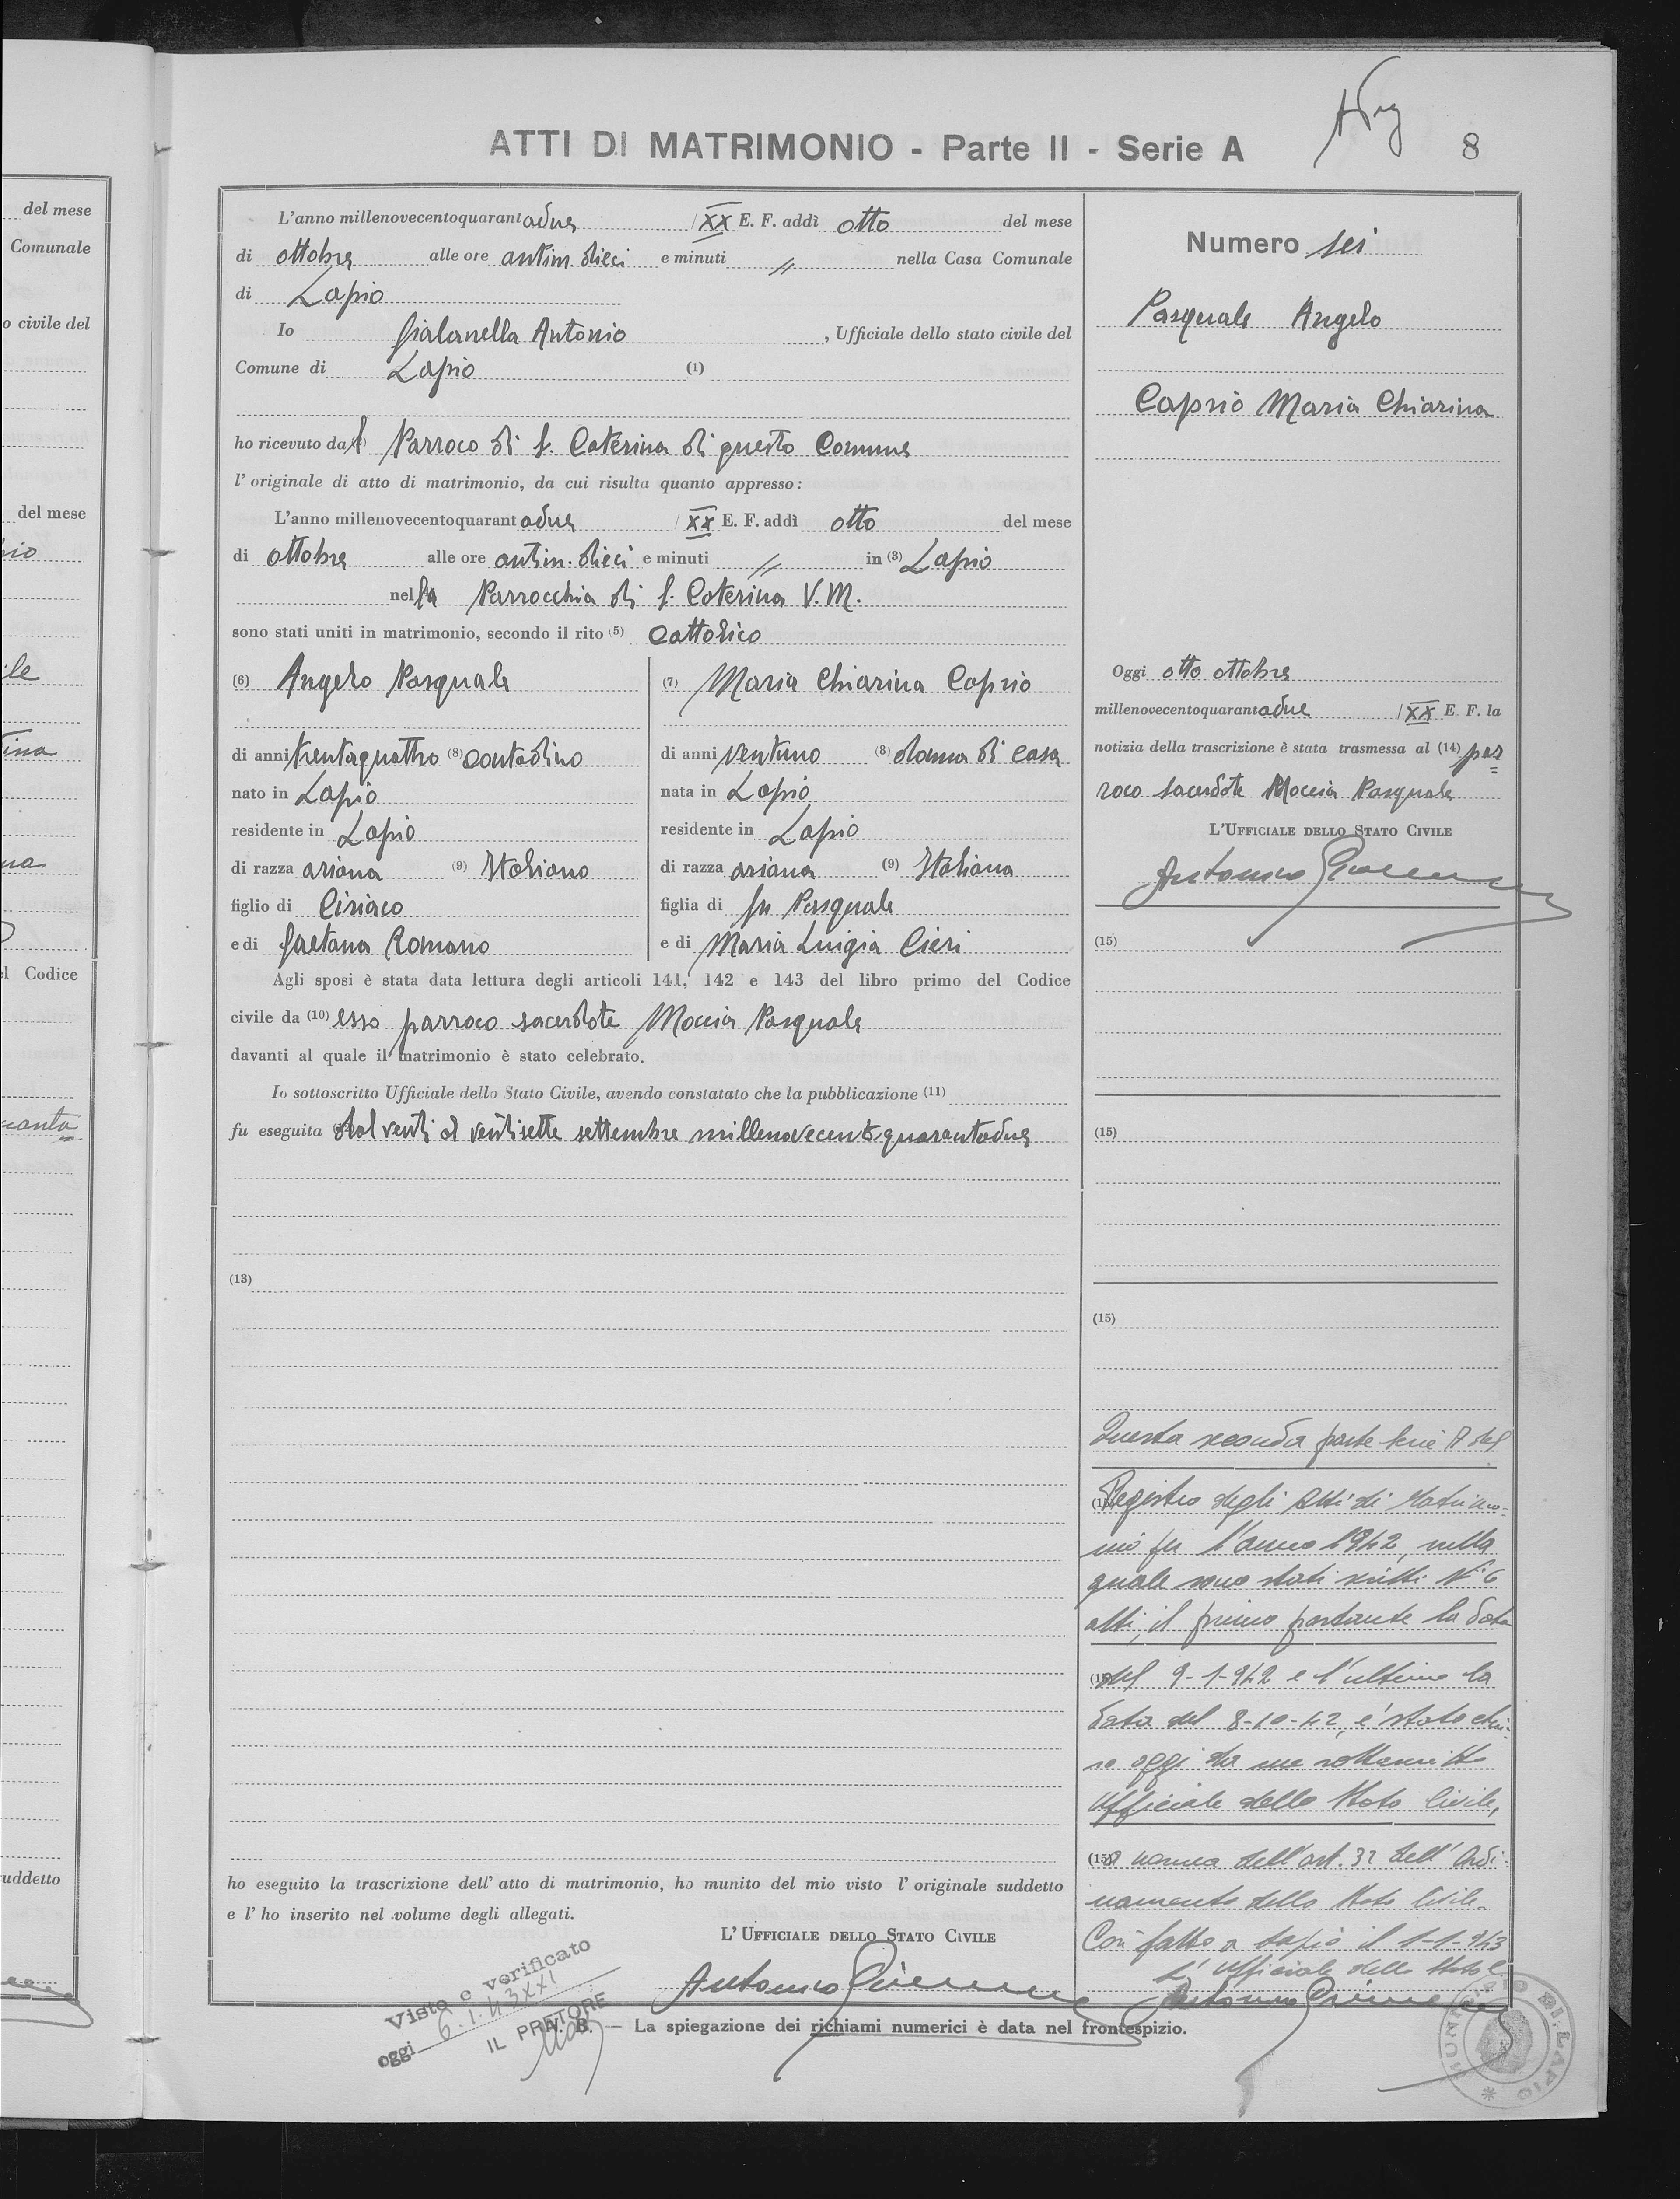 ATTI DI MATRIMONIO - Parte II - Serie A
8
L'anno millenovecentoquarantadue XX E. F. addì otto del mese
di ottobre alle ore antim. dieci e minuti // nella Casa Comunale
di Lapio
Io Gialanella Antonio, Ufficiale dello stato civile del
Comune di Lapio (1)
ho ricevuto dal Parroco di S. Caterina di questo Comune
l'originale di atto di matrimonio, da cui risulta quanto appresso:
L'anno millenovecentoquarantadue XX E. F. addì otto del mese
di ottobre alle ore antim. dieci e minuti // in (3) Lapio
nella Parrocchia di S. Caterina V. M.
sono stati uniti in matrimonio, secondo il rito (5) Cattolico
(6) Angelo Pasquale
di anni trentaquattro (8) contadino
nato in Lapio
residente in Lapio
di razza ariana (9) Italiano
figlio di Ciriaco
e di Gaetana Romano
(7) Maria Chiarina Caprio
di anni ventuno (8) donna di casa
nata in Lapio
residente in Lapio
di razza ariana (9) Italiana
figlia di fu Pasquale
e di Maria Luigia Cieri
Agli sposi è stata data lettura degli articoli 141, 142 e 143 del libro primo del Codice
civile da (10) esso parroco sacerdote Moccia Pasquale
davanti al quale il matrimonio è stato celebrato.
Io sottoscritto Ufficiale dello Stato Civile, avendo constatato che la pubblicazione (11)
fu eseguita dal venti al ventisette settembre millenovecentoquarantadue
(13)
ho eseguito la trascrizione dell'atto di matrimonio, ho munito del mio visto l'originale suddetto
e l'ho inserito nel volume degli allegati.
L'UFFICIALE DELLO STATO CIVILE
Antonio
Visto e verificato
oggi 6.1.43 XXI
IL PRETORE
N. B. — La spiegazione dei richiami numerici è data nel frontespizio.
Numero sei
Pasquale Angelo
Caprio Maria Chiarina
Oggi otto ottobre
millenovecentoquarantadue XX E. F. la
notizia della trascrizione è stata trasmessa al (14) par
roco sacerdote Moccia Pasquale
L'UFFICIALE DELLO STATO CIVILE
Antonio
(15)
(15)
(15)
Questa seconda parte serie A del
Registro degli Atti di Matrimo-
nio per l'anno 1942, nella
quale sono stati scritti N° 6
atti, il primo portante la data
del 9-1-942 e l'ultimo la
data del 8-10-42, è stato chiu-
so oggi da me sottoscritto
Ufficiale dello Stato Civile,
(15) a norma dell'art. 32 dell'Ordi-
namento dello Stato Civile.
Così fatto a Lapio il 1-1-943
L'Ufficiale dello Stato C.
Antonio
MUNICIPIO DI LAPIO
del mese
Comunale
o civile del
del mese
l Codice
suddetto